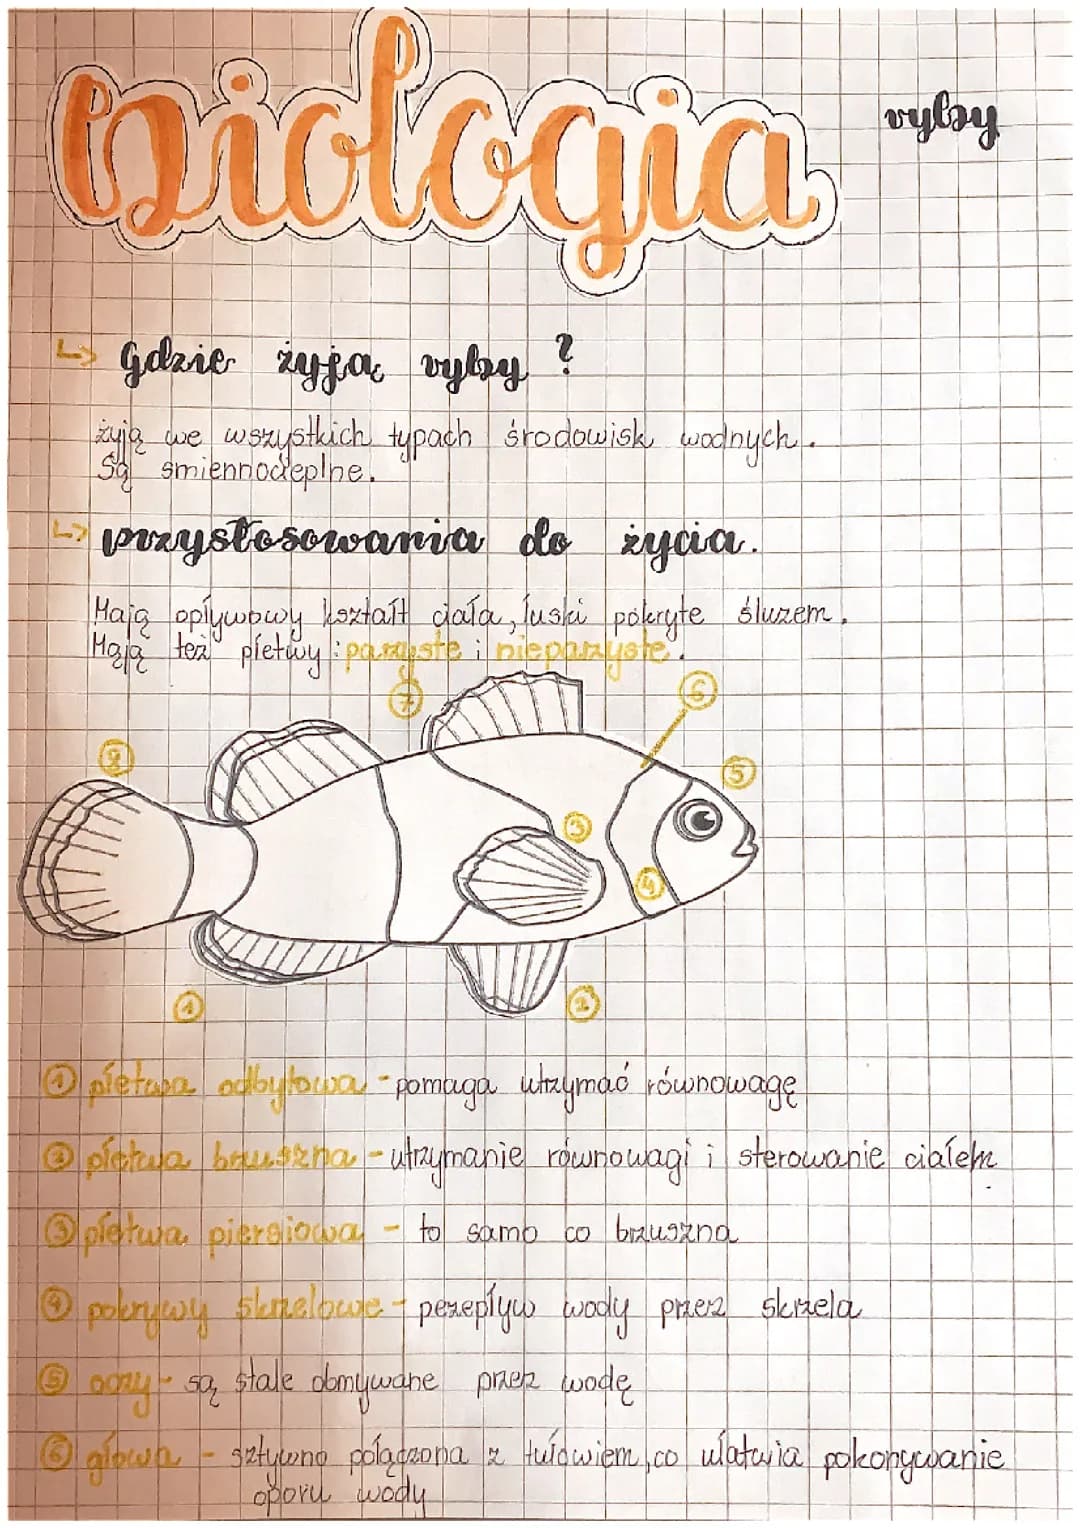 Biologia
ryby
↳ Gdzie żyją ryby?
żyją we wszystkich typach środowisk wodnych.
Są zmiennocieplne.
↳ przystosowania do życia.
Mają opływowy kształt ciała, łuski pokryte śluzem.
Mają też płetwy: parzyste i nieparzyste.
7
6
8
5
3
4
1
2
① płetwa odbytowa - pomaga utrzymać równowagę
② płetwa brzuszna - utrzymanie równowagi i sterowanie ciałem
③ płetwa piersiowa - to samo co brzuszna
④ pokrywy skrzelowe - pezepływ wody przez skrzela
⑤ oczy - są stale obmywane przez wodę
⑥ głowa - sztywno połączona z tułowiem, co ułatwia pokonywanie
oporu wody